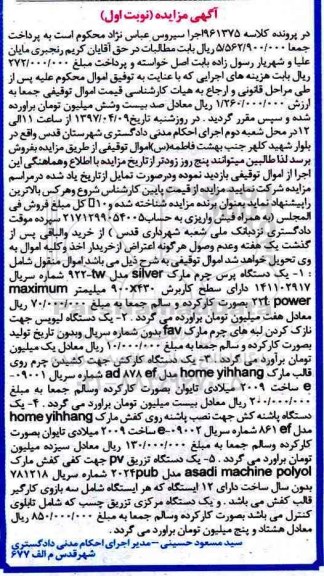 آگهی مزایده (نوبت اول)
در پرونده کلاسه ۹۶۱۳۷۵اجرا سیروس عباس نژاد محکوم است به پرداخت
جمعا ۵/۵۶۲/۹۰۰/۰۰۰ ریال بابت مطالبات در حق آقایان کریم رنجبری مایان
علیا و شهریار رسول زاده بابت اصل خواسته و پرداخت مبلغ ۲۷۲/۰۰۰/۰۰۰
ریال بابت هزینه های اجرایی که با عنایت به توقیف اموال محکوم علیه پس از
طی مراحل قانونی و ارجاع به هیات کارشناسی قیمت اموال توقیفی جمعا به
ارزش ۱/۲۶۰/۰۰۰/۰۰۰ ریال معادل صد بیست وشش میلیون تومان براورده
شده و سپس مقرر گردید . در روزشنبه تاریخ۱۳۹۷/۰۴/۰۹ از ساعت ۱۱الی
۱۲در محل شعبه دوم اجرای احکام مدنی دادگستری شهرستان قدس واقع در
بلوار شهید کلهر جنب بهشت فاطمه(س)اموال توقیفی از طریق مزایده بفروش
برسد لذا طالبین میتوانند پنج روز زودتر از تاریخ مزایده با اطلاع وهماهنگی این
اجرا از اموال توقیفی بازدید نموده ودرصورت تمایل ازتاریخ یاد شده درمراسم
مزایده شرکت نمایند مزایده از قیمت پایین کارشناس شروع وهرکس بالاترین
راپیشنهاد نماید بعنوان برنده مزایده شناخته شده و۱۰٪ کل مبلغ فروش فی
المجلس (به همراه فیش واریزی به حساب۲۱۷۱۲۹۹۰۵۴۰۰۵ سپرده موقت
دادگستری نزدبانک ملی شعبه شهرداری قدس ) از خرید والباقی پس از
گذشت یک هفته وعدم وصول هرگونه اعتراض ازخریدار اخذ وکلیه اموال به
وی تحویل خواهد شد اموال توقیفی به شرح ذیل می باشد اموال منقول شامل
: ۱- یک دستگاه پرس چرم مارک silver مدل ۹۲۲-tw شماره سریال
۱۴۱۱۰۲۹۱۷ دارای سطح کاربرش ۴۳۰×۹۰۰ میلیمتر maximum
power ۲۲t بصورت کارکرده و سالم جمعا به مبلغ ۷۰/۰۰۰/۰۰۰ ریال
معادل هفت میلیون تومان برآورده می گردد . ۲- یک دستگاه لیویس جهت
نازک کردن لبه های چرم مارک fav بدون شماره سریال وبدون تاریخ تولید
بصورت کارکرده و سالم جمعا به مبلغ ۱۰/۰۰۰/۰۰۰ ریال معادل یک میلیون
تومان برآورده می گردد . ۳- یک دستگاه کارکش جهت کشیدن چرم روی
قالب مارک home yihhang مدل ad ۸۷۸ ef شماره سریال ۰۰۹۰۱-
e ساخت ۲۰۰۹ میلادی تایوان بصورت کارکرده وسالم جمعا به مبلغ
۲۰۰/۰۰۰/۰۰۰ ریال معادل بیست میلیون تومان برآورد می گردد . ۴- یک
دستگاه پاشنه کش جهت نصب پاشنه روی کفش مارک home yihhang
مدل ۸۶۱ ef شماره سریال ۰۰۹۰۲-e ساخت ۲۰۰۹ میلادی تایوان بصورت
کارکرده وسالم جمعا به مبلغ ۱۳۰/۰۰۰/۰۰۰ ریال معادل سیزده میلیون
تومان برآورد می گردد . ۵- یک دستگاه تزریق pv جهت کفی کفش مارک
asadi machine polyol مدل ۲۰۲۴pub شماره سریال ۷۸۱۲۱۸
بدون سال ساخت دارای ۱۲ ایستگاه که هر ایستگاه شامل سه بازوی کارگیر
قالب کفش می باشد . و یک دستگاه مرکزی تزریق چسب که شامل تابلوی
کنترل می باشد بصورت کارکرده وسالم جمعا به مبلغ ۸۵۰/۰۰۰/۰۰۰ ریال
معادل هشتاد و پنج میلیون تومان برآورد می گردد .
سید مسعود حسینی -مدیر اجرای احکام مدنی دادگستری
شهرقدس م الف ۶۷۷